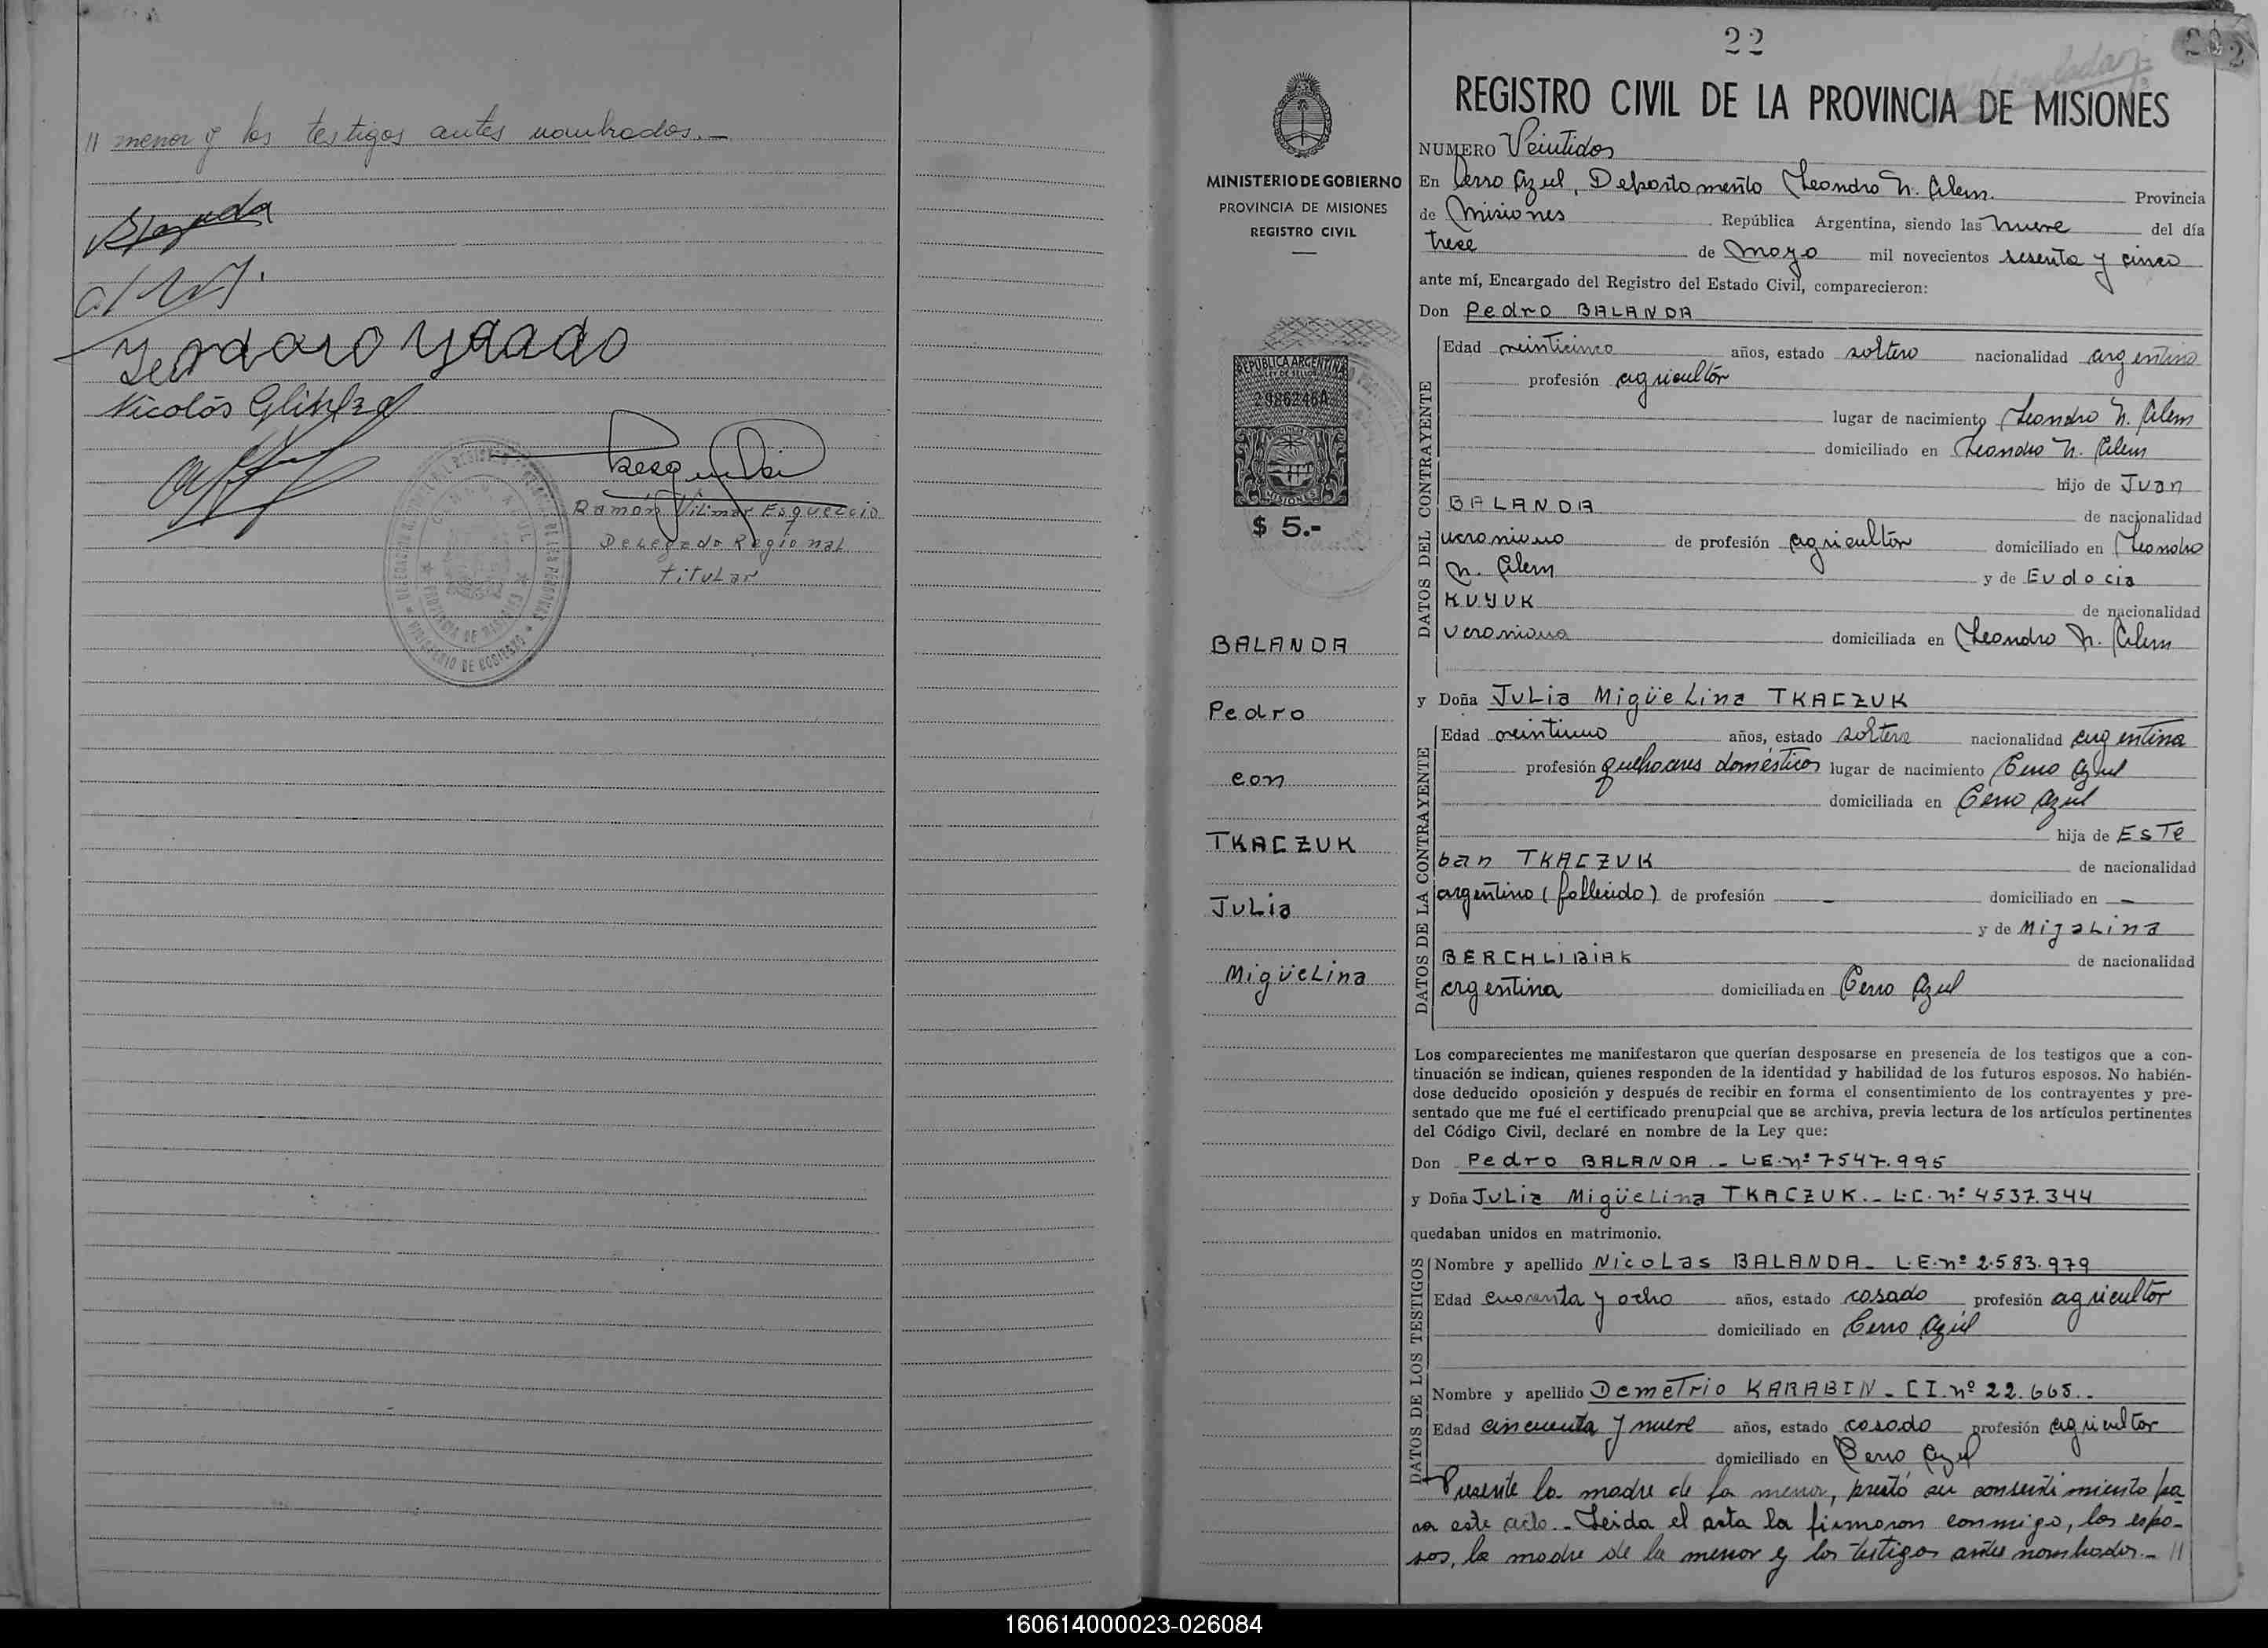 // menor y los testigos antes nombrados.-
Nicolás
Ramón Vilimar Esquercio
Delegado Regional
Titular
22
REGISTRO CIVIL DE LA PROVINCIA DE MISIONES
MINISTERIO DE GOBIERNO
PROVINCIA DE MISIONES
REGISTRO CIVIL
REPUBLICA ARGENTINA
LEY DE SELLOS
2986246A
MISIONES
$ 5.-
BALANDA
Pedro
con
TKACZUK
Julia
Migüelina
NUMERO Veintidos
En Cerro Azul, Departamento Leandro N. Alem. Provincia
de Misiones República Argentina, siendo las nueve del día
trece de mayo mil novecientos sesenta y cinco
ante mí, Encargado del Registro del Estado Civil, comparecieron:
Don Pedro BALANDA
DATOS DEL CONTRAYENTE
Edad veinticinco años, estado soltero nacionalidad argentino
profesión agricultor
lugar de nacimiento Leandro N. Alem
domiciliado en Leandro N. Alem
hijo de Juan
BALANDA de nacionalidad
ucraniano de profesión agricultor domiciliado en Leandro
N. Alem y de Eudocia
KUYUK de nacionalidad
ucraniana domiciliada en Leandro N. Alem
y Doña Julia Migüelina TKACZUK
DATOS DE LA CONTRAYENTE
Edad veintiuno años, estado soltera nacionalidad argentina
profesión quehaceres domésticos lugar de nacimiento Cerro Azul
domiciliada en Cerro Azul
hija de Este
ban TKACZUK de nacionalidad
argentino (fallecido) de profesión - domiciliado en -
y de Migalina
BERCHLIBIAK de nacionalidad
argentina domiciliada en Cerro Azul
Los comparecientes me manifestaron que querían desposarse en presencia de los testigos que a con-
tinuación se indican, quienes responden de la identidad y habilidad de los futuros esposos. No habién-
dose deducido oposición y después de recibir en forma el consentimiento de los contrayentes y pre-
sentado que me fué el certificado prenupcial que se archiva, previa lectura de los artículos pertinentes
del Código Civil, declaré en nombre de la Ley que:
Don Pedro BALANDA - L.E. nº 7547.995
y Doña Julia Migüelina TKACZUK.- L.C. nº 4537.344
quedaban unidos en matrimonio.
DATOS DE LOS TESTIGOS
Nombre y apellido Nicolas BALANDA- L.E. nº 2.583.979
Edad cuarenta y ocho años, estado casado profesión agricultor
domiciliado en Cerro Azul
Nombre y apellido Demetrio KARABIN - C.I. nº 22.665.-
Edad cincuenta y nueve años, estado casado profesión agricultor
domiciliado en Cerro Azul
Presente la madre de la menor, prestó su consentimiento pa
ra este acto.- Leida el acta la firmaron conmigo, los espo-
sos, la madre de la menor y los testigos antes nombrados.- //
160614000023-026084